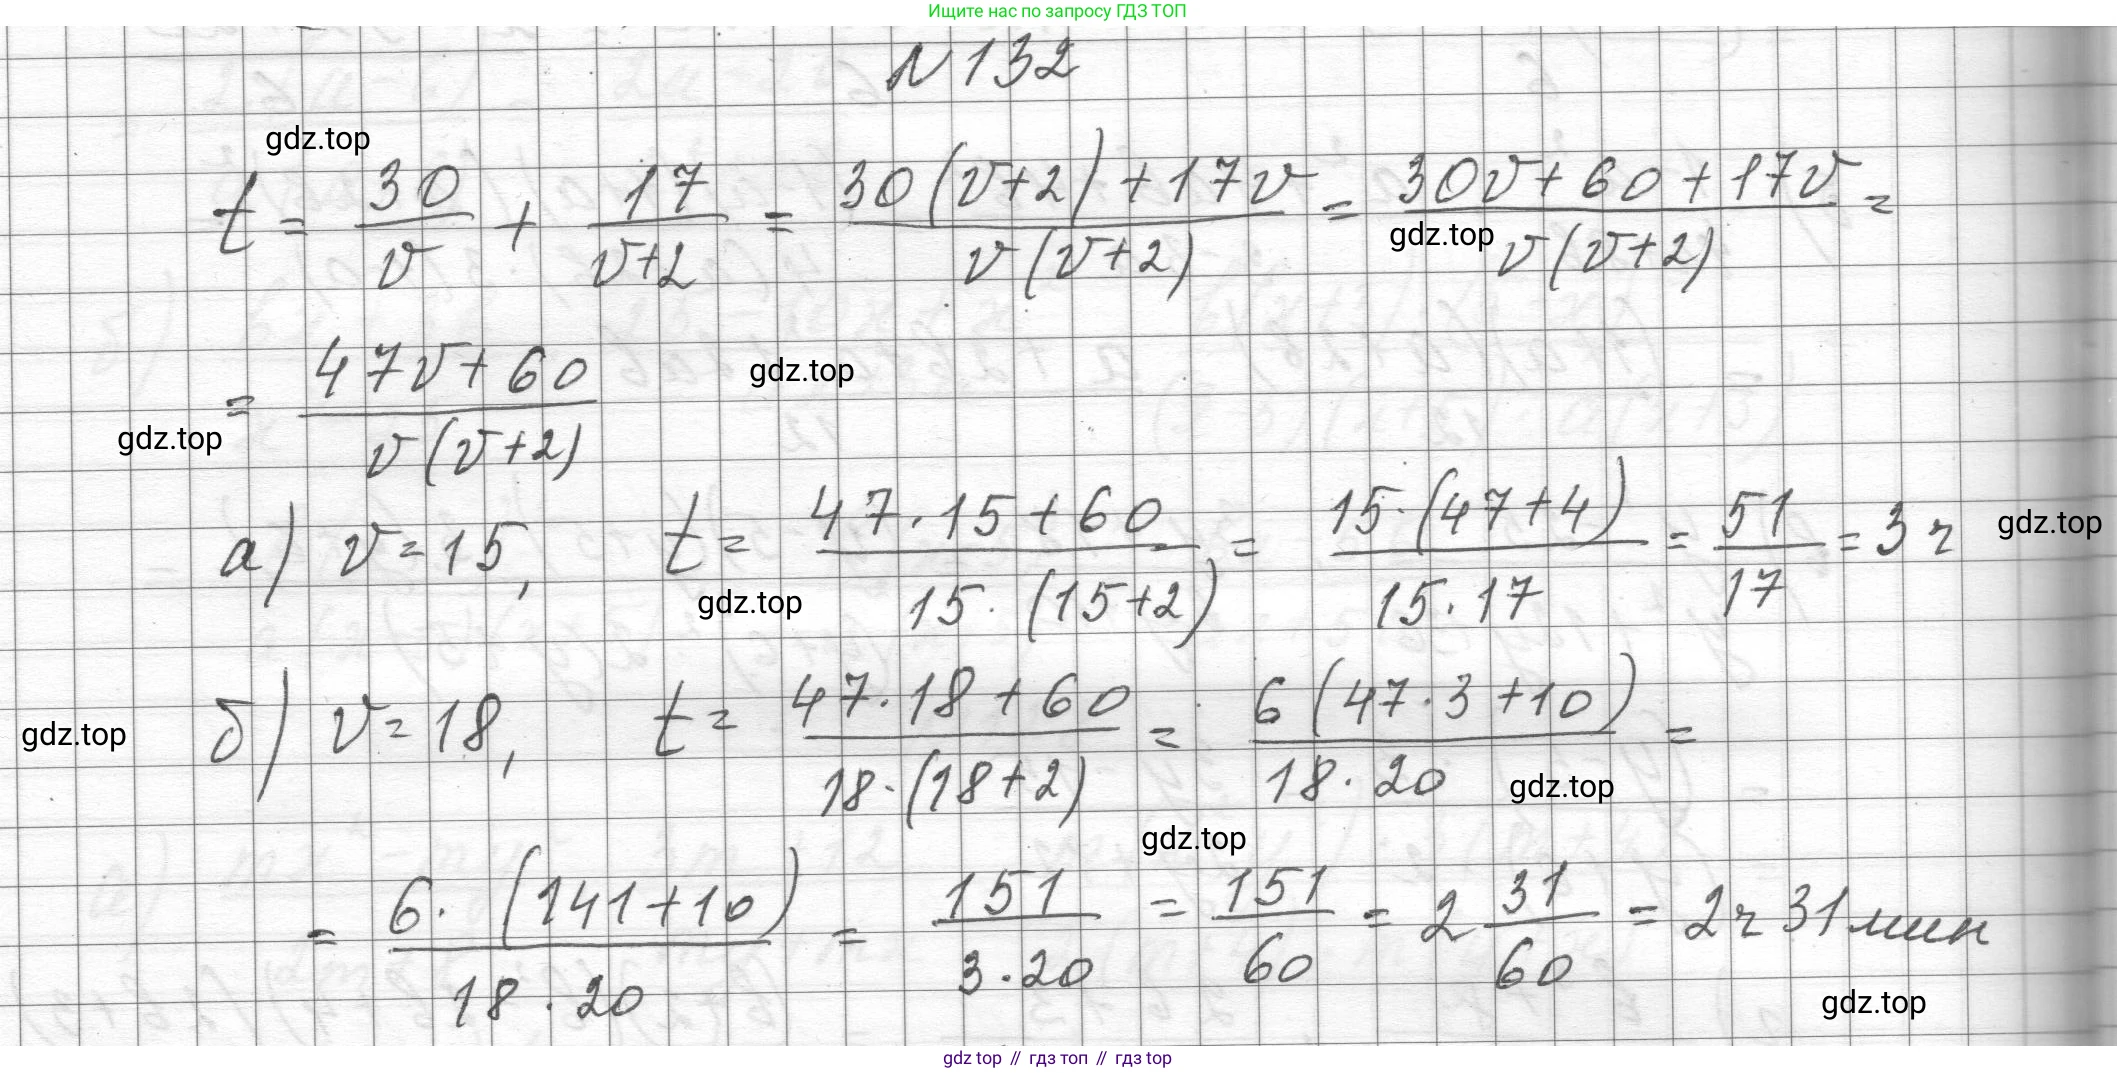 Ищите нас по запросу ГДЗ ТОП
N 132
gdz.top
t = 30/v + 17/(v+2) = (30(v+2)+17v)/(v(v+2)) = (30v+60+17v)/(v(v+2)) =
gdz.top
= (47v+60)/(v(v+2))
gdz.top
gdz.top
а) v=15, t= (47·15+60)/(15·(15+2)) = (15·(47+4))/(15·17) = 51/17 = 3 ч
gdz.top
gdz.top
б) v=18, t= (47·18+60)/(18·(18+2)) = (6(47·3+10))/(18·20) =
gdz.top
gdz.top
gdz.top
= (6·(141+10))/(18·20) = 151/(3·20) = 151/60 = 2 31/60 = 2ч 31 мин
gdz.top
gdz top // гдз топ // гдз top